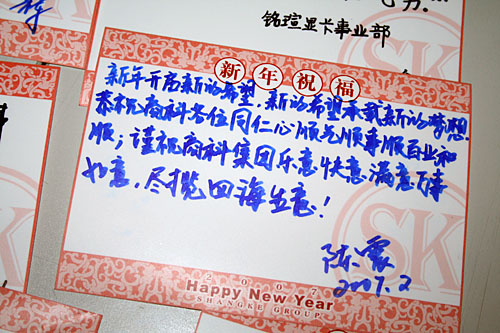 铭瑄显卡事业部
新年祝福
新年开启新的希望，新的希望承载新的梦想。
恭祝商科各位同仁心顺气顺事顺百业和
顺；谨祝商科集团乐意快意满意万事
如意，尽揽四海生意！
陈霞
2007.2
2007
Happy New Year
SHANGKE GROUP
SK